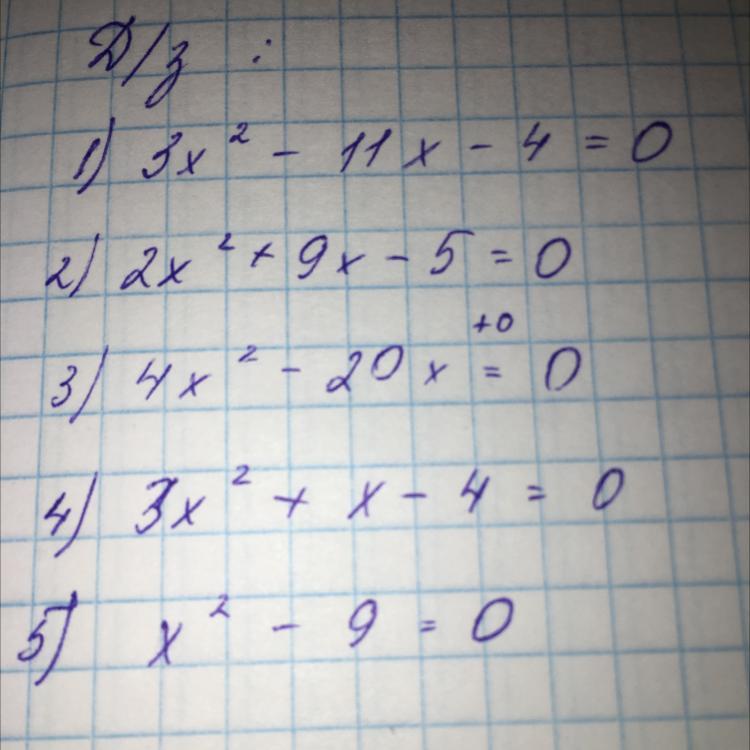 Д/з :
1) 3x² - 11x - 4 = 0
2) 2x² + 9x - 5 = 0
+0
3) 4x² - 20x = 0
4) 3x² + x - 4 = 0
5) x² - 9 = 0